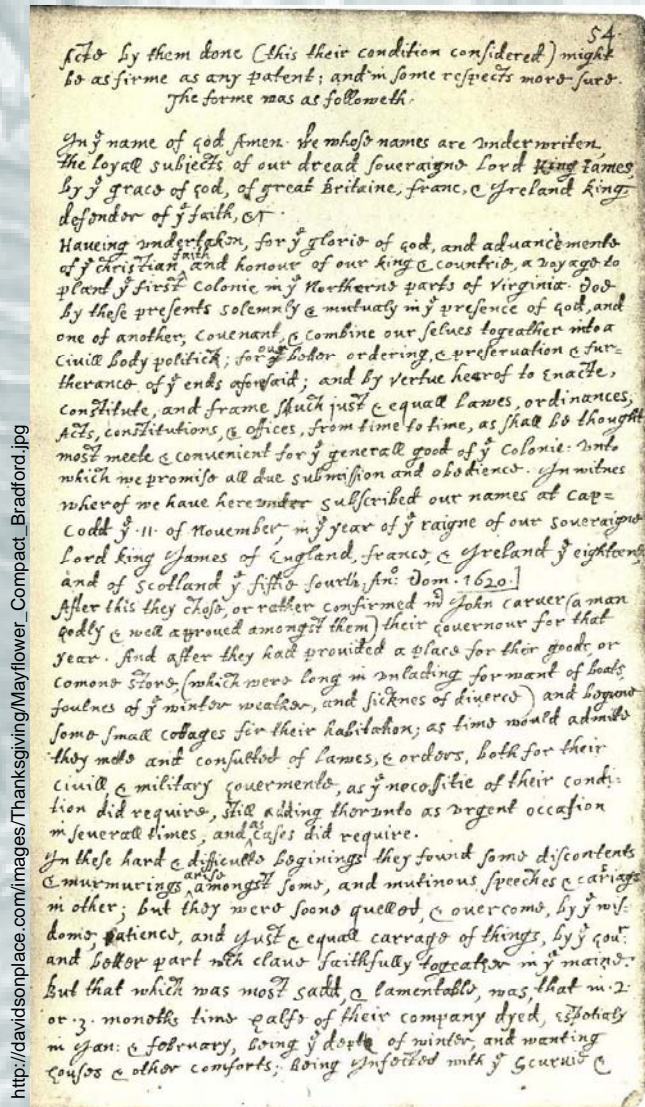 54.
Acts by them done (this their condition considered) might
be as firme as any patent; and in some respects more sure.
The forme was as followeth.
In yͤ name of God Amen. We whose names are underwriten,
the loyall subjects of our dread soveraigne Lord King James,
by yͤ grace of God, of great Britaine, franc, & Ireland king,
defender of yͤ faith, &c.
Haveing undertaken, for yͤ glorie of God, and advancemente
of yͤ christian faith and honour of our king & countrie, a voyage to
plant yͤ first colonie in yͤ Northerne parts of Virginia. Doe
by these presents solemnly & mutualy in yͤ presence of God, and
one of another, covenant, & combine our selves togeather into a
Civill body politick; for our better ordering, & preservation & fur=
therance of yͤ ends aforesaid; and by vertue hearof to Enacte,
constitute, and frame shuch just & equall Lawes, ordinances,
Acts, constitutions, & offices, from time to time, as shall be thought
most meete & convenient for yͤ generall good of yͤ Colonie: unto
which we promise all due submission and obedience. In witnes
wherof we have hereunder subscribed our names at Cap=
Codd yͤ .11. of November, in yͤ year of yͤ raigne of our soveraigne
Lord king James of England, france, & Ireland yͤ eighteenth
and of Scotland yͤ fiftie fourth. Anͦ: Dom. 1620.]
After this they chose, or rather confirmed mͬ John Carver (a man
godly & well approved amongst them) their governour for that
year. And after they had provided a place for their goods, or
comone store, (which were long in unlading for want of boats,
foulnes of yͤ winter weather, and sicknes of diverce) and begune
some small cottages for their habitation; as time would admitte
they mette and consulted of lawes, & orders, both for their
civill & military govermente, as yͤ necessitie of their condi=
tion did require, still adding therunto as urgent occasion
in severall times, and as cases did require.
In these hard & difficulte beginings they found some discontents
& murmurings arise amongst some, and mutinous speeches & cariags
in other; but they were soone quelled, & overcome, by yͤ wis=
dome, patience, and just & equall carrage of things, by yͤ Govͬ:
and better part wͨͪ clave faithfully togeather in yͤ maine.
But that which was most sadd, & lamentable, was, that in .2.
or .3. moneths time halfe of their company dyed, espetialy
in Jan: & february, being yͤ depth of winter, and wanting
houses & other comforts; being Infected with yͤ Scurvie &
http://davidsonplace.com/images/Thanksgiving/Mayflower_Compact_Bradford.jpg